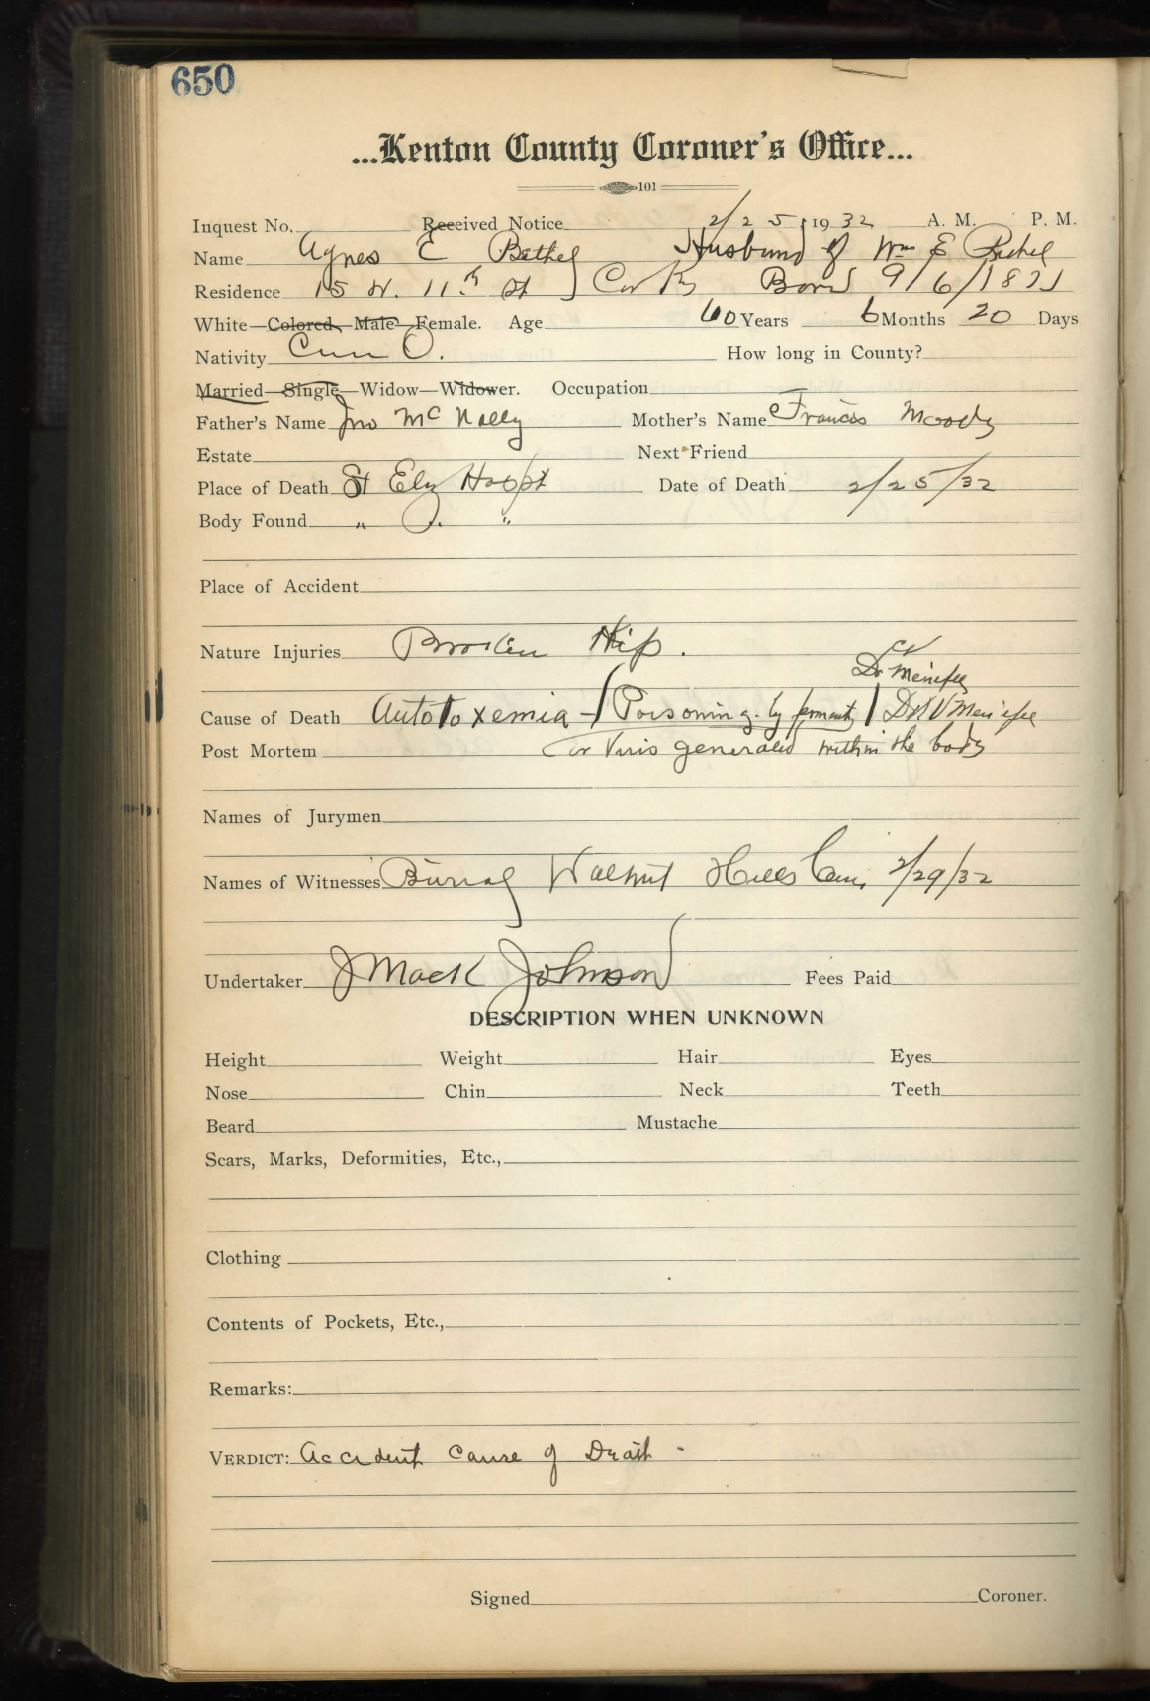 650
...Kenton County Coroner's Office...
101
Inquest No. Received Notice 2/25, 1932 A. M. P. M.
Name Agnes E Bethel Husband of Wm E Bethel
Residence 15 W. 11th St Cov Ky Born 9/6/1871
White—Colored—Male—Female. Age 60 Years 6 Months 20 Days
Nativity Cin O. How long in County?
Married—Single—Widow—Widower. Occupation
Father's Name Jno McNally Mother's Name Frances Moody
Estate Next Friend
Place of Death St Eliz Hospt Date of Death 2/25/32
Body Found " "
Place of Accident
Nature Injuries Broken Hip.
Dr Menefee
Cause of Death Autotoxemia - Poisoning by Dr Menefee
Post Mortem or Virus generated within the body
Names of Jurymen
Names of Witnesses Burial Walnut Hills Cem. 2/29/32
Undertaker J Mack Johnson Fees Paid
DESCRIPTION WHEN UNKNOWN
Height Weight Hair Eyes
Nose Chin Neck Teeth
Beard Mustache
Scars, Marks, Deformities, Etc.,
Clothing
Contents of Pockets, Etc.,
Remarks:
VERDICT: Accident cause of Death -
Signed Coroner.